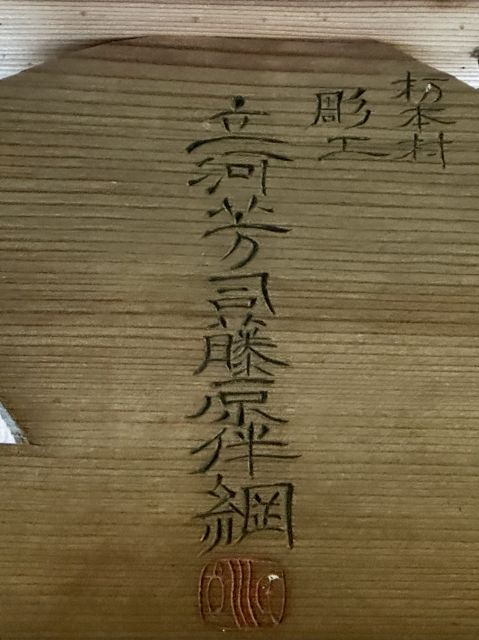 杤本村
彫工
立河芳司藤原伴綱